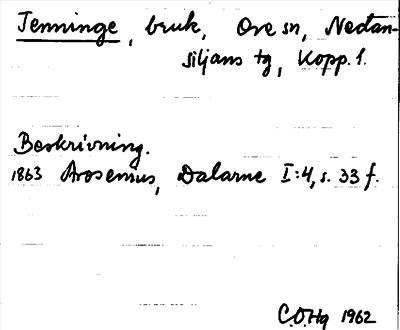 Jenninge, bruk, Ore sn, Nedan-
siljans tg, Kopp. l.
Beskrivning.
1863 Arosenius, Dalarne I:4, s. 33 f.
C.O.Hg 1962